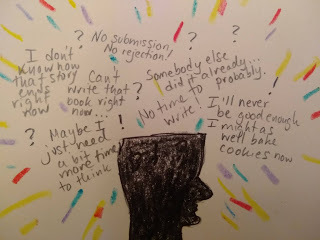 ? No submission,
No rejection!
?
?
I don't
know how
that story
ends
right
now
Can't
write that
book right
now...
Somebody else
did it already...
probably.
!
?
No time to
write!
I'll never
be good enough
I might as
well bake
cookies now
?
Maybe I
just need
a bit
more time
to think
!